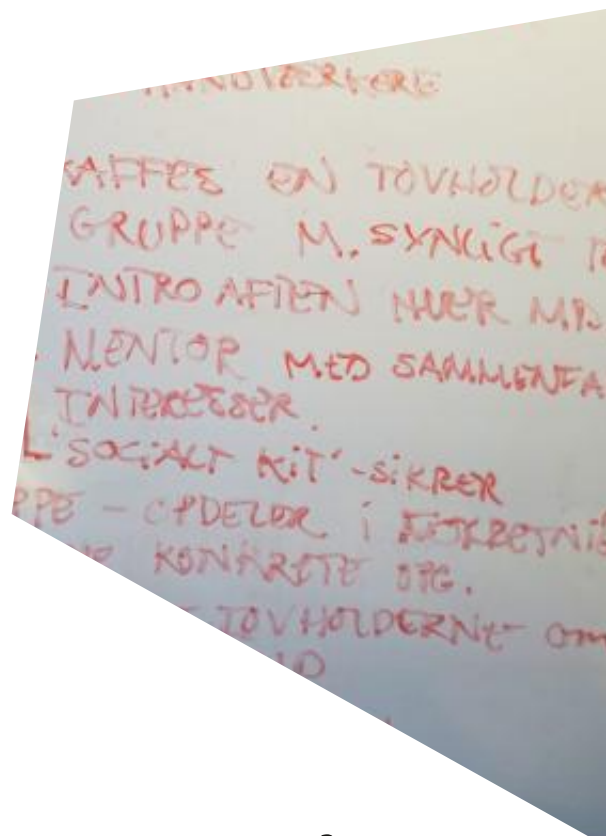 HÅNDVÆRKERE
KAFFES EN TOVHOLDER
GRUPPE M. SYNLIGT
INTRO AFTEN HVER MD
MENTOR MED SAMMENFA
INTERESSER.
'SOCIALT KIT' - SIKRER
PPE - OPDELER i
KONKRETE OPG.
TOVHOLDERNE om